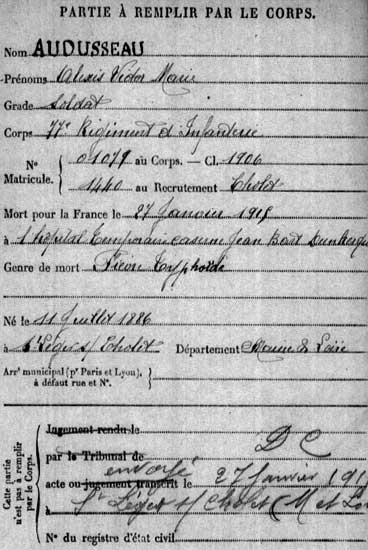 PARTIE À REMPLIR PAR LE CORPS.
Nom AUDUSSEAU
Prénoms Alexis Victor Marie
Grade Soldat
Corps 77e Régiment d'Infanterie
N° Matricule. { 01079 au Corps. — Cl. 1906
1440 au Recrutement Cholet
Mort pour la France le 27 Janvier 1915
à l'hôpital temporaire caserne Jean Bart Dunkerque
Genre de mort Fièvre Typhoïde
Né le 11 Juillet 1886
à St Léger s/ Cholet Département Maine & Loire
Arrt municipal (pr Paris et Lyon), à défaut rue et N°. {
Cette partie n'est pas à remplir par le Corps.
Jugement rendu le
par le Tribunal de D C
envoyé
acte ou jugement transcrit le 27 Janvier 191
à St Léger s/ Cholet (M et Lo
N° du registre d'état civil